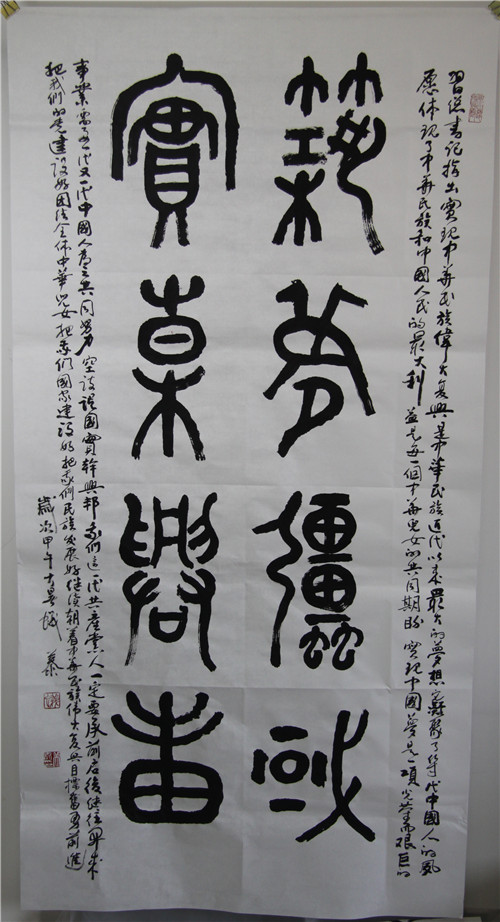 習總书记指出實現中華民族偉大复興是中華民族近代以來最大的夢想它凝聚了幾代中國人的夙
愿体現了中華民族和中國人民的最大利益是每一個中華兒女的共同期盼實現中國夢是一項光榮而艰巨的
築夢疆域
實幹興邦
事業需要一代又一代中國人為之共同努力空談誤國實幹興邦我們這一代共產党人一定要承前启後继往開來
把我們的党建設好团结全体中華兒女把我們國家建設好把我們民族发展好继续朝着中華民族偉大复興目標奮勇前進
歲次甲午大暑